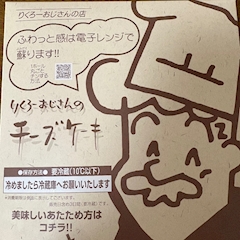 りくろーおじさんの店
ふわっと感は電子レンジで
蘇ります!!
りくろーおじさんの
チーズケーキ
●保存方法● 要冷蔵(10℃以下)
冷めましたら冷蔵庫へお願いいたします
美味しいあたため方は
コチラ!!